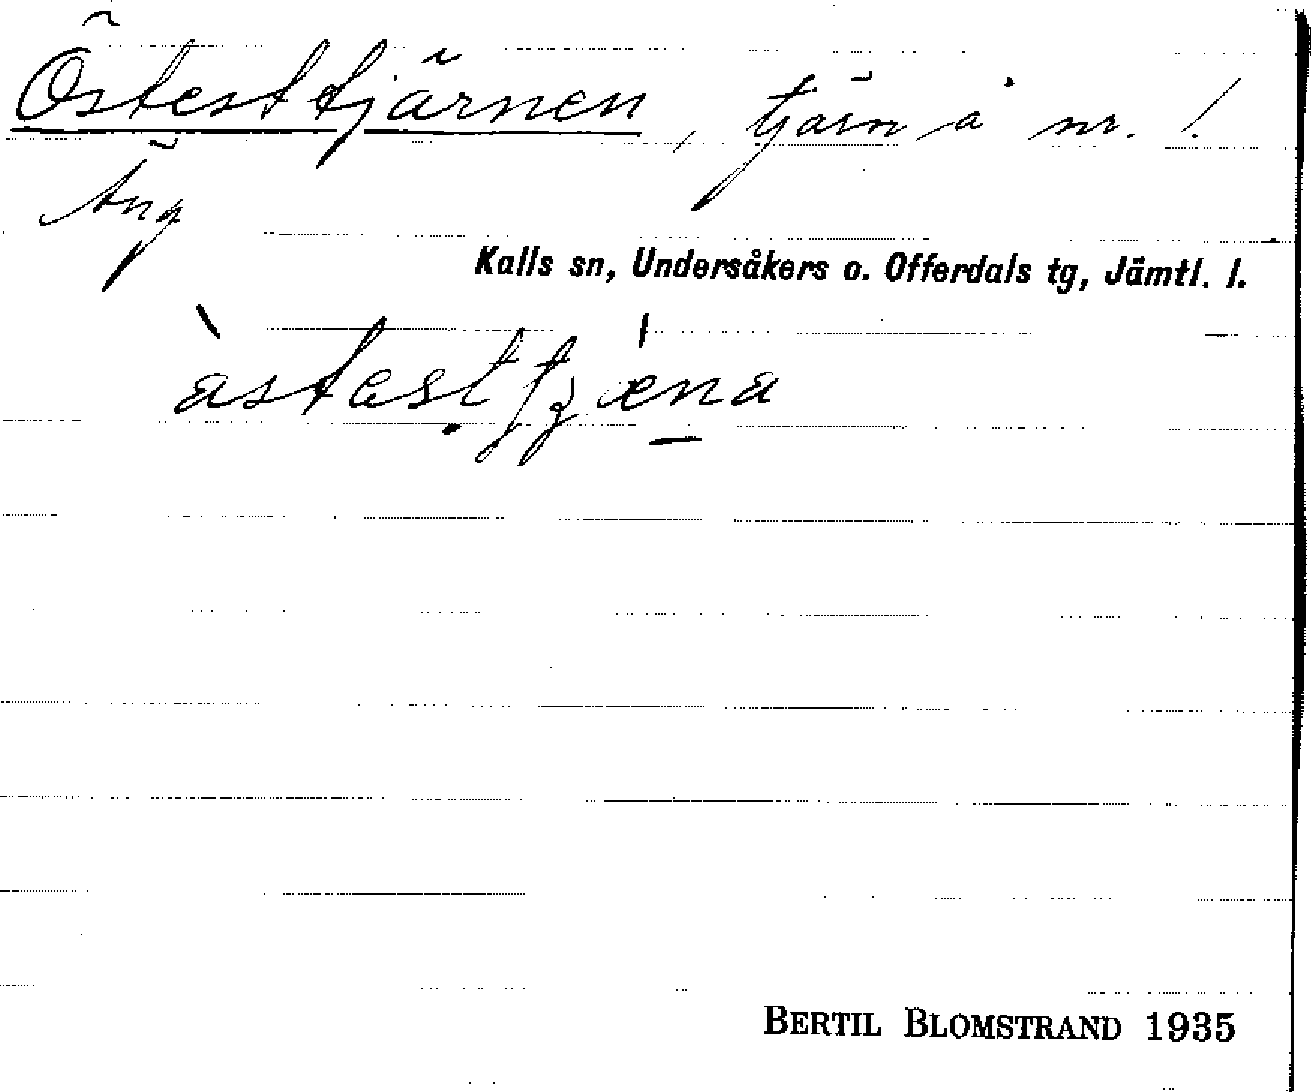 Östesttjärnen, tjärn å nr. 1.
Äng
Kalls sn, Undersåkers o. Offerdals tg, Jämtl. l.
BERTIL BLOMSTRAND 1935